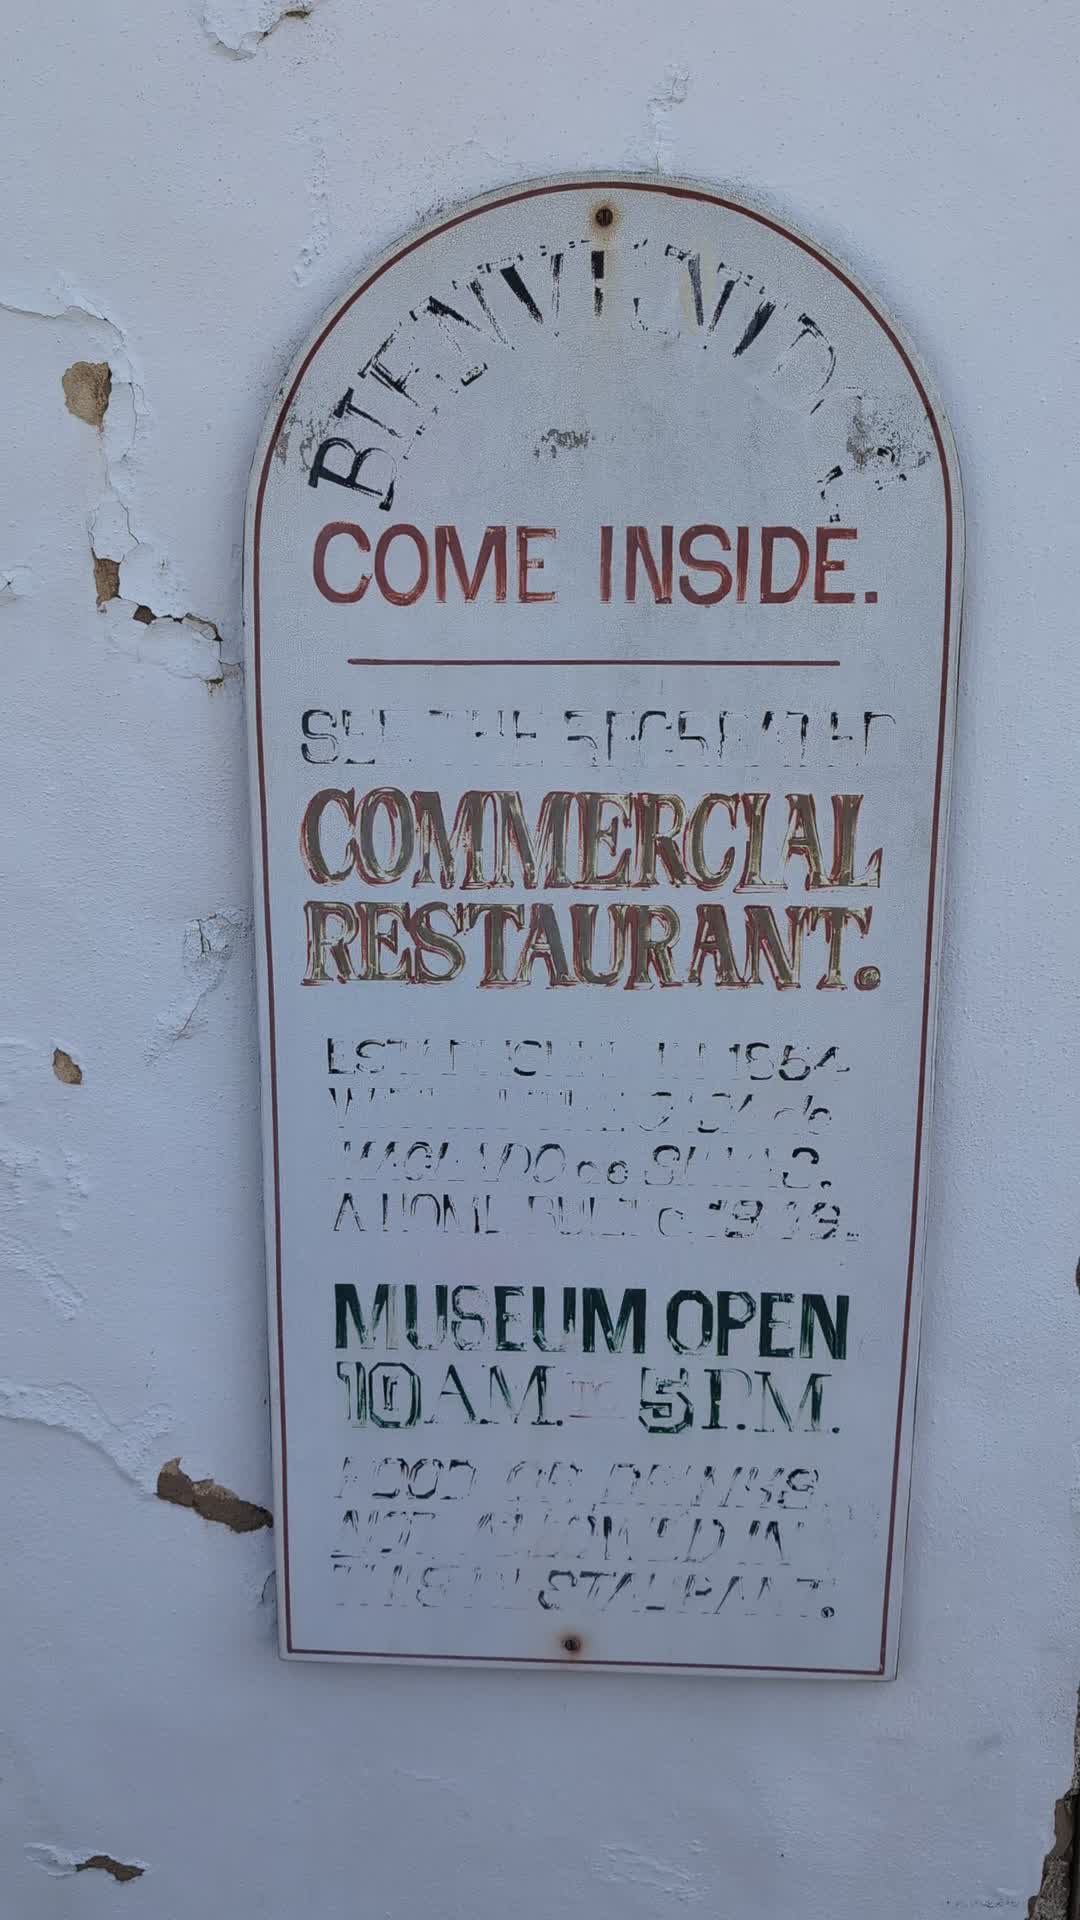 BIENVENIDOS
COME INSIDE.
SEE THE RECREATED
COMMERCIAL
RESTAURANT.
ESTABLISHED IN 1854
WITHIN THE CASA de
MACHADO de SILVAS.
A HOME BUILT c.
MUSEUM OPEN
10 A.M. TO 5 P.M.
FOOD OR DRINKS
NOT ALLOWED IN
THIS RESTAURANT.